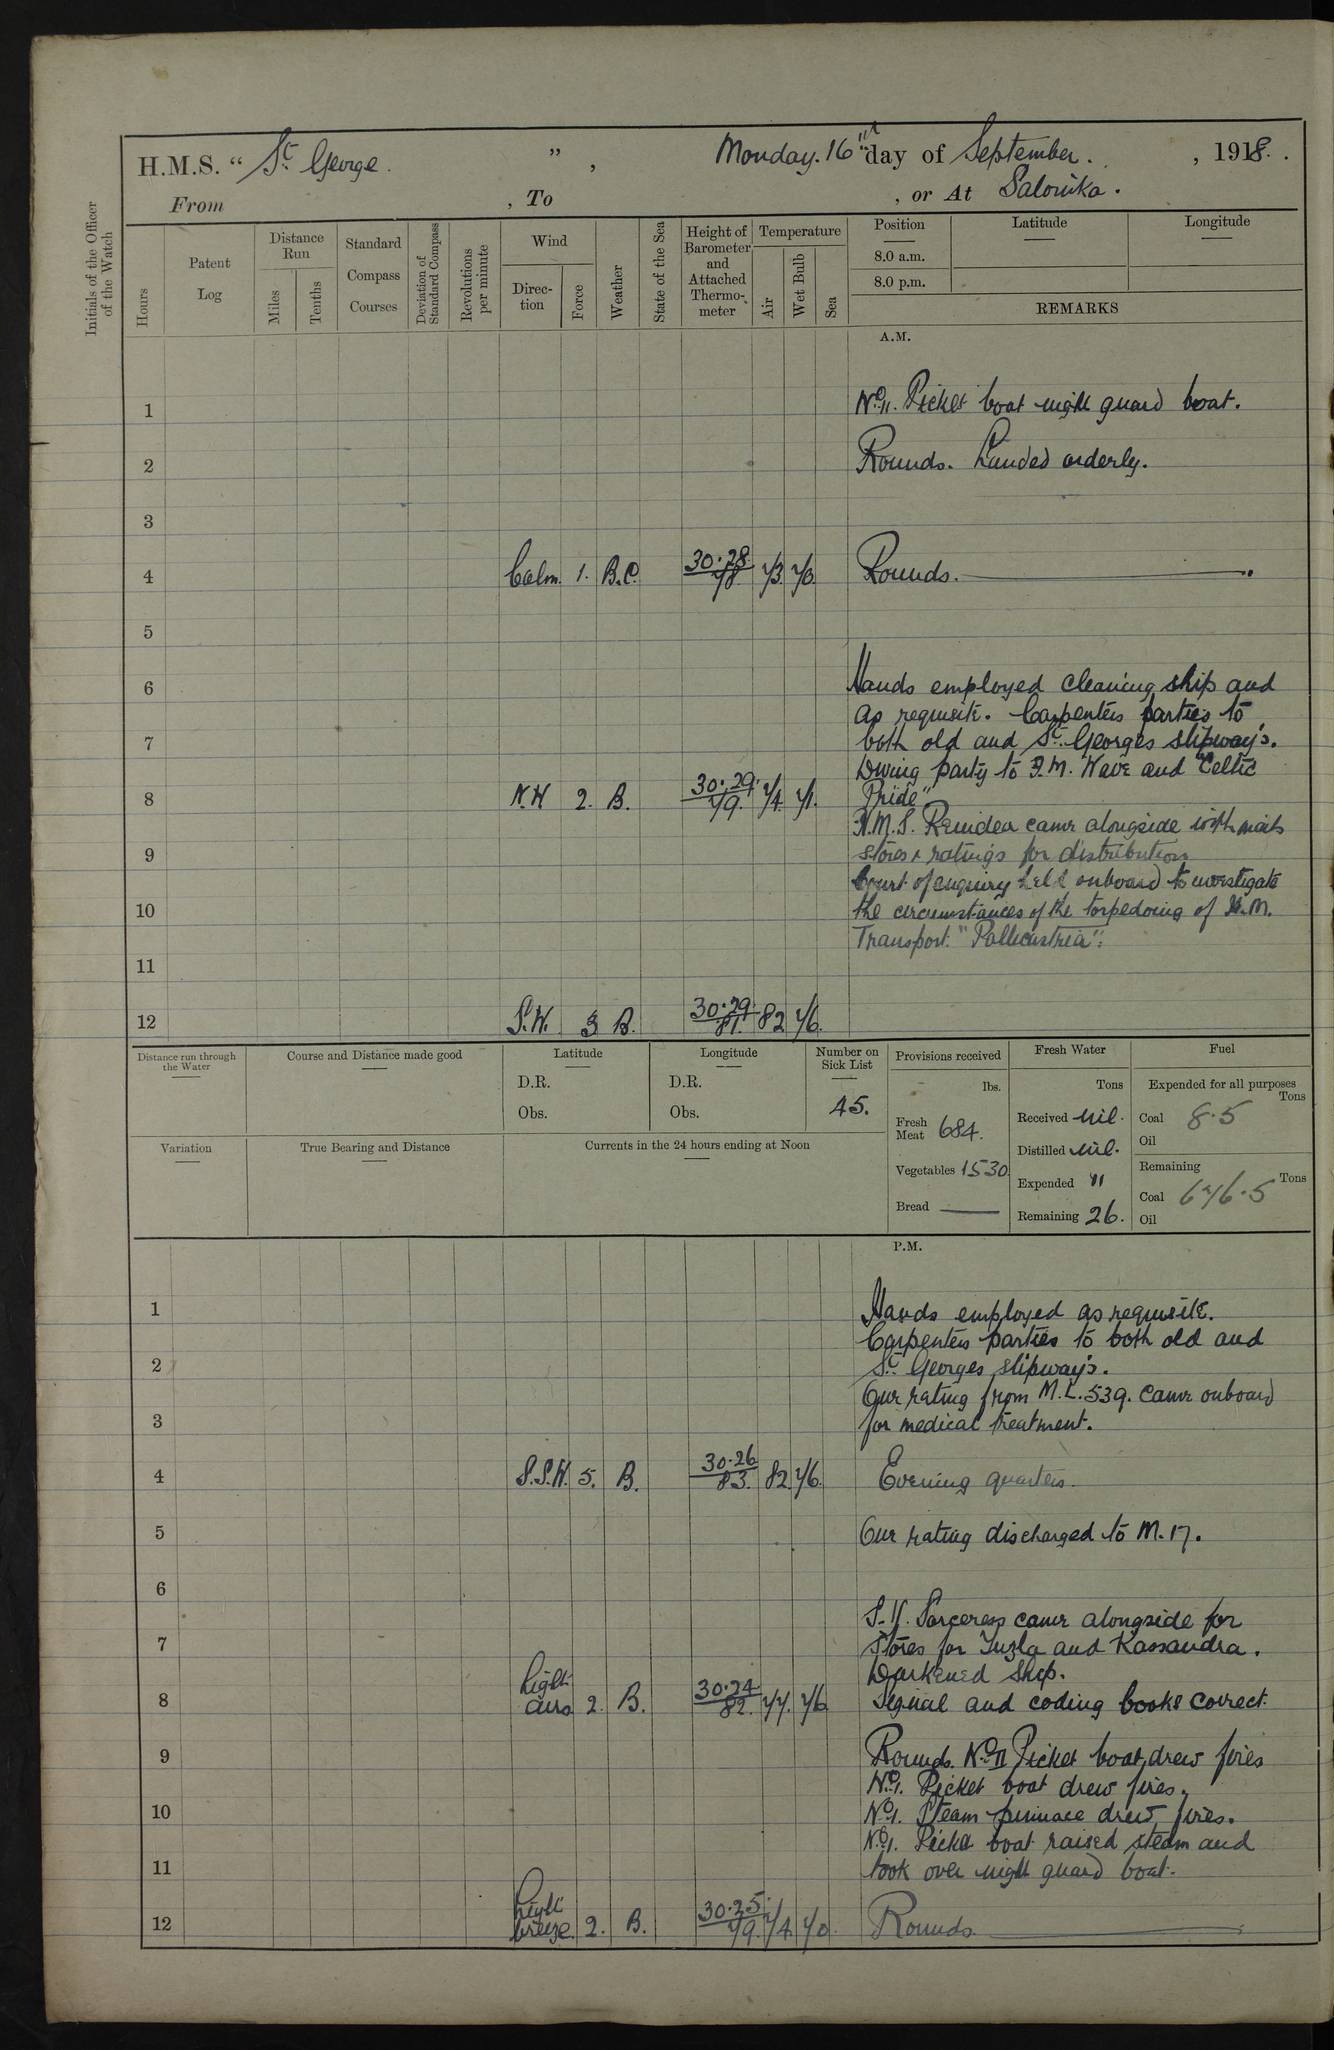 H.M.S. “ St George ” , Monday. 16th day of September. , 1918.
From , To , or At Salonika.
Initials of the Officer of the Watch
Hours
Patent Log
Distance Run
Miles
Tenths
Standard Compass Courses
Deviation of Standard Compass
Revolutions per minute
Wind
Direction
Force
Weather
State of the Sea
Height of Barometer and Attached Thermometer
Temperature
Air
Wet Bulb
Sea
Position Latitude Longitude
8.0 a.m.
8.0 p.m.
REMARKS
A.M.
1 No. 11. Picket boat night guard boat.
2 Rounds. Landed orderly.
3
4 Calm. 1. B.C. 30.28 78 73 70 Rounds.
5
6 Hands employed cleaning ship and
as requisite. Carpenters parties to
7 both old and St. Georges slipway's.
Diving party to F.M. Wave and "Celtic
8 N.W 2. B. 30.29. 79. 74. 71. Pride"
H.M.S. Reindeer came alongside with mails
9 stores & ratings for distribution
Court of enquiry held onboard to investigate
10 the circumstances of the torpedoing of H.M.
Transport
11
12 S.W. 3 B. 30.29. 81. 82 76.
Distance run through the Water
Course and Distance made good
Latitude
D.R.
Obs.
Longitude
D.R.
Obs.
Number on Sick List
45.
Provisions received
lbs.
Fresh Meat 684.
Vegetables 1530
Bread —
Fresh Water
Tons
Received Nil.
Distilled Nil.
Expended "
Remaining 26.
Fuel
Expended for all purposes
Tons
Coal 8.5
Oil
Remaining
Tons
Coal 676.5
Oil
Variation
True Bearing and Distance
Currents in the 24 hours ending at Noon
P.M.
1 Hands employed as requisite.
Carpenters parties to both old and
2 St. Georges slipway's.
One rating from M.L. 539. came onboard
3 for medical treatment.
4 S.S.W. 5. B. 30.26 83. 82. 76. Evening quarters.
5 One rating discharged to M.17.
6
S.V. Sorceress came alongside for
7 stores for Tuzla and Kassandra.
Darkened Ship.
8 Light airs 2. B. 30.24 82. 77. 76 Signal and coding books correct.
9 Rounds. No. 11 Picket boat drew fires
No. 1. Picket boat drew fires.
10 No. 1. Steam pinnace drew fires.
No. 1. Picket boat raised steam and
11 took over night guard boat.
12 Light breeze. 2. B. 30.25. 79. 74 70. Rounds.